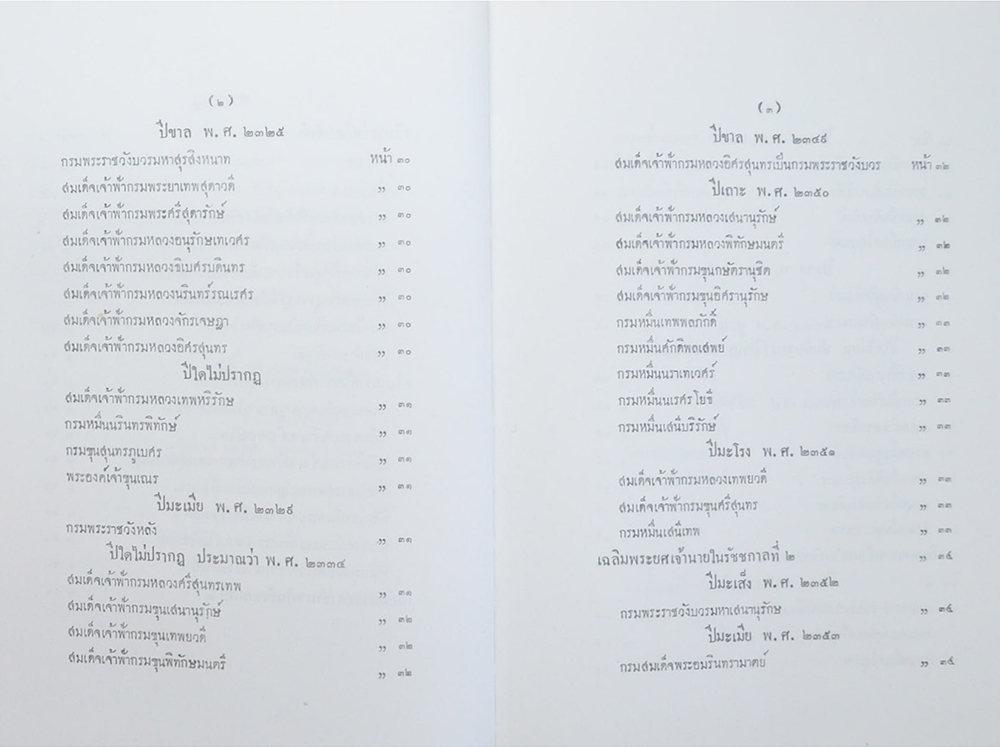 (๒)
ปีขาล พ.ศ. ๒๓๒๕
กรมพระราชวังบวรมหาสุรสิงหนาท หน้า ๓๐
สมเด็จเจ้าฟ้ากรมพระยาเทพสุดาวดี ,, ๓๐
สมเด็จเจ้าฟ้ากรมพระศรีสุดารักษ์ ,, ๓๐
สมเด็จเจ้าฟ้ากรมหลวงอนุรักษเทเวศร ,, ๓๐
สมเด็จเจ้าฟ้ากรมหลวงธิเบศรบดินทร ,, ๓๐
สมเด็จเจ้าฟ้ากรมหลวงนรินทร์รณเรศร ,, ๓๐
สมเด็จเจ้าฟ้ากรมหลวงจักรเจษฎา ,, ๓๐
สมเด็จเจ้าฟ้ากรมหลวงอิศรสุนทร ,, ๓๐
ปีใดไม่ปรากฏ
สมเด็จเจ้าฟ้ากรมหลวงเทพหริรักษ ,, ๓๑
กรมหมื่นนรินทรพิทักษ์ ,, ๓๑
กรมขุนสุนทรภูเบศร ,, ๓๑
พระองค์เจ้าขุนเณร ,, ๓๑
ปีมะเมีย พ.ศ. ๒๓๒๙
กรมพระราชวังหลัง ,, ๓๑
ปีใดไม่ปรากฏ ประมาณว่า พ.ศ. ๒๓๓๔
สมเด็จเจ้าฟ้ากรมหลวงศรีสุนทรเทพ ,, ๓๑
สมเด็จเจ้าฟ้ากรมขุนเสนานุรักษ์ ,, ๓๒
สมเด็จเจ้าฟ้ากรมขุนเทพยวดี ,, ๓๒
สมเด็จเจ้าฟ้ากรมขุนพิทักษมนตรี ,, ๓๒
(๓)
ปีขาล พ.ศ. ๒๓๔๙
สมเด็จเจ้าฟ้ากรมหลวงอิศรสุนทรเป็นกรมพระราชวังบวร หน้า ๓๒
ปีเถาะ พ.ศ. ๒๓๕๐
สมเด็จเจ้าฟ้ากรมหลวงเสนานุรักษ์ ,, ๓๒
สมเด็จเจ้าฟ้ากรมหลวงพิทักษมนตรี ,, ๓๒
สมเด็จเจ้าฟ้ากรมขุนกษัตรานุชิต ,, ๓๒
สมเด็จเจ้าฟ้ากรมขุนอิศรานุรักษ ,, ๓๒
กรมหมื่นเทพพลภักดิ์ ,, ๓๓
กรมหมื่นศักดิพลเสพย์ ,, ๓๓
กรมหมื่นนราเทเวศร์ ,, ๓๓
กรมหมื่นนเรศร์โยธี ,, ๓๓
กรมหมื่นเสนีบริรักษ์ ,, ๓๓
ปีมะโรง พ.ศ. ๒๓๕๑
สมเด็จเจ้าฟ้ากรมหลวงเทพยวดี ,, ๓๓
สมเด็จเจ้าฟ้ากรมขุนศรีสุนทร ,, ๓๓
กรมหมื่นเสนีเทพ ,, ๓๓
เฉลิมพระยศเจ้านายในรัชชกาลที่ ๒ ,, ๓๔
ปีมะเส็ง พ.ศ. ๒๓๕๒
กรมพระราชวังบวรมหาเสนานุรักษ ,, ๓๔
ปีมะเมีย พ.ศ. ๒๓๕๓
กรมสมเด็จพระอมรินทรามาตย์ ,, ๓๔